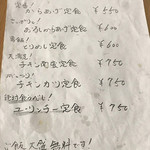 定番!
からあげ定食 ¥550
さっぱり。
おろしからあげ定食 ¥600
とりめし定食 ¥600
大満足!
チキン南蛮定食 ¥750
チキンカツ定食 ¥750
ユーリンチー定食 ¥750
ご飯大盛無料です!